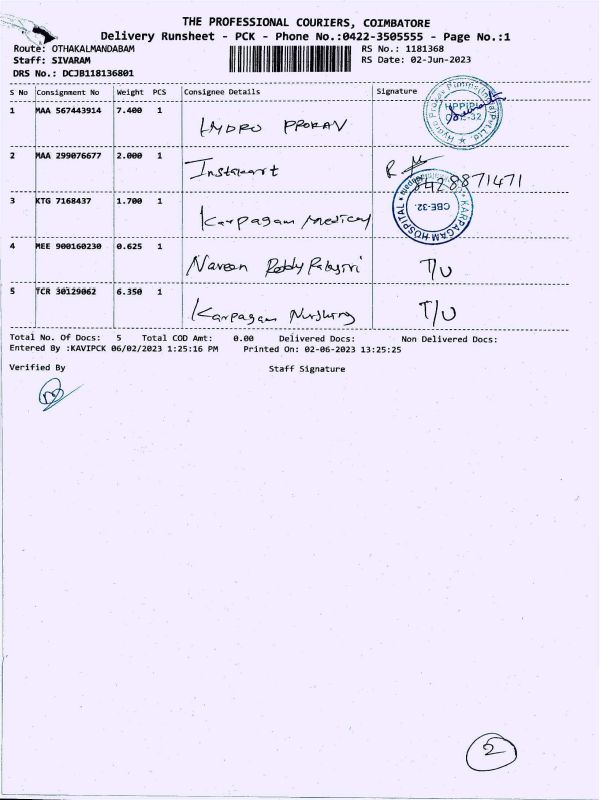 THE PROFESSIONAL COURIERS, COIMBATORE
Delivery Runsheet - PCK - Phone No.:0422-3505555 - Page No.:1
Route: OTHAKALMANDABAM RS No.: 1181368
Staff: SIVARAM RS Date: 02-Jun-2023
DRS No.: DCJB118136801
S No Consignment No Weight PCS Consignee Details Signature
1 MAA 567443914 7.400 1 HYDRO PROKAV
HPPIPL CBE-32
2 MAA 299076677 2.000 1 Instakart
8871471
3 KTG 7168437 1.700 1 Karpagam Medical
KARPAGAM HOSPITAL CBE-32.
4 MEE 900160230 0.625 1 Naveen Reddy T/U
5 TCR 30129062 6.350 1 Karpagam Nursing T/U
Total No. Of Docs: 5 Total COD Amt: 0.00 Delivered Docs: Non Delivered Docs:
Entered By :KAVIPCK 06/02/2023 1:25:16 PM Printed On: 02-06-2023 13:25:25
Verified By Staff Signature
2